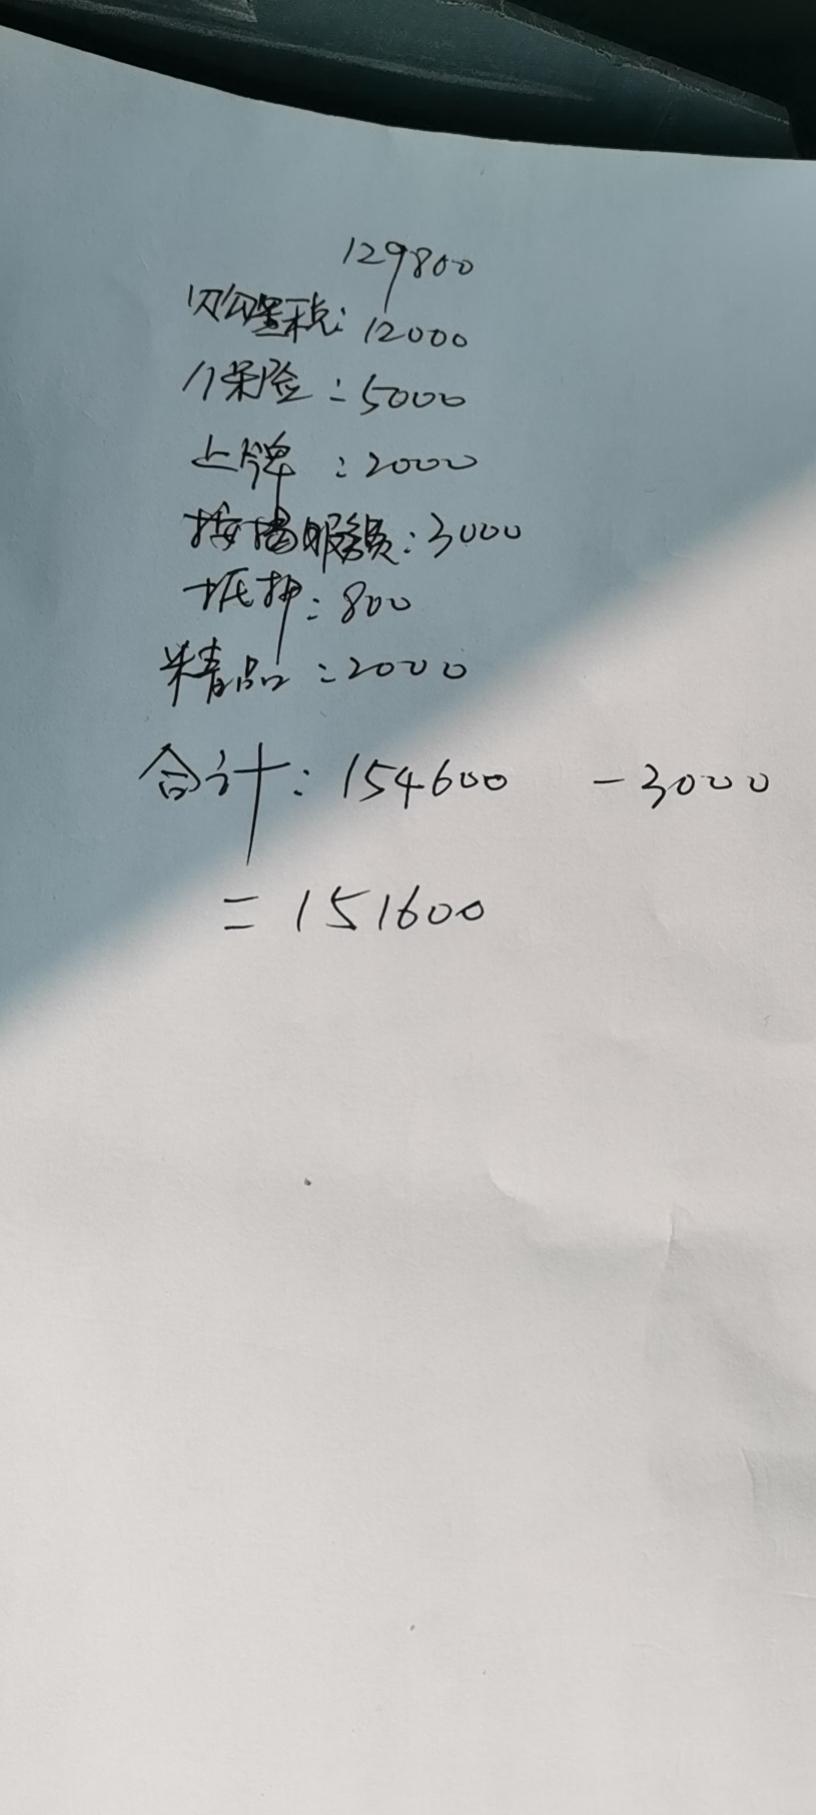 129800
购置税: 12000
保险: 5000
上牌: 2000
按揭服务费: 3000
抵押: 800
精品: 2000
合计: 154600 -3000
= 151600